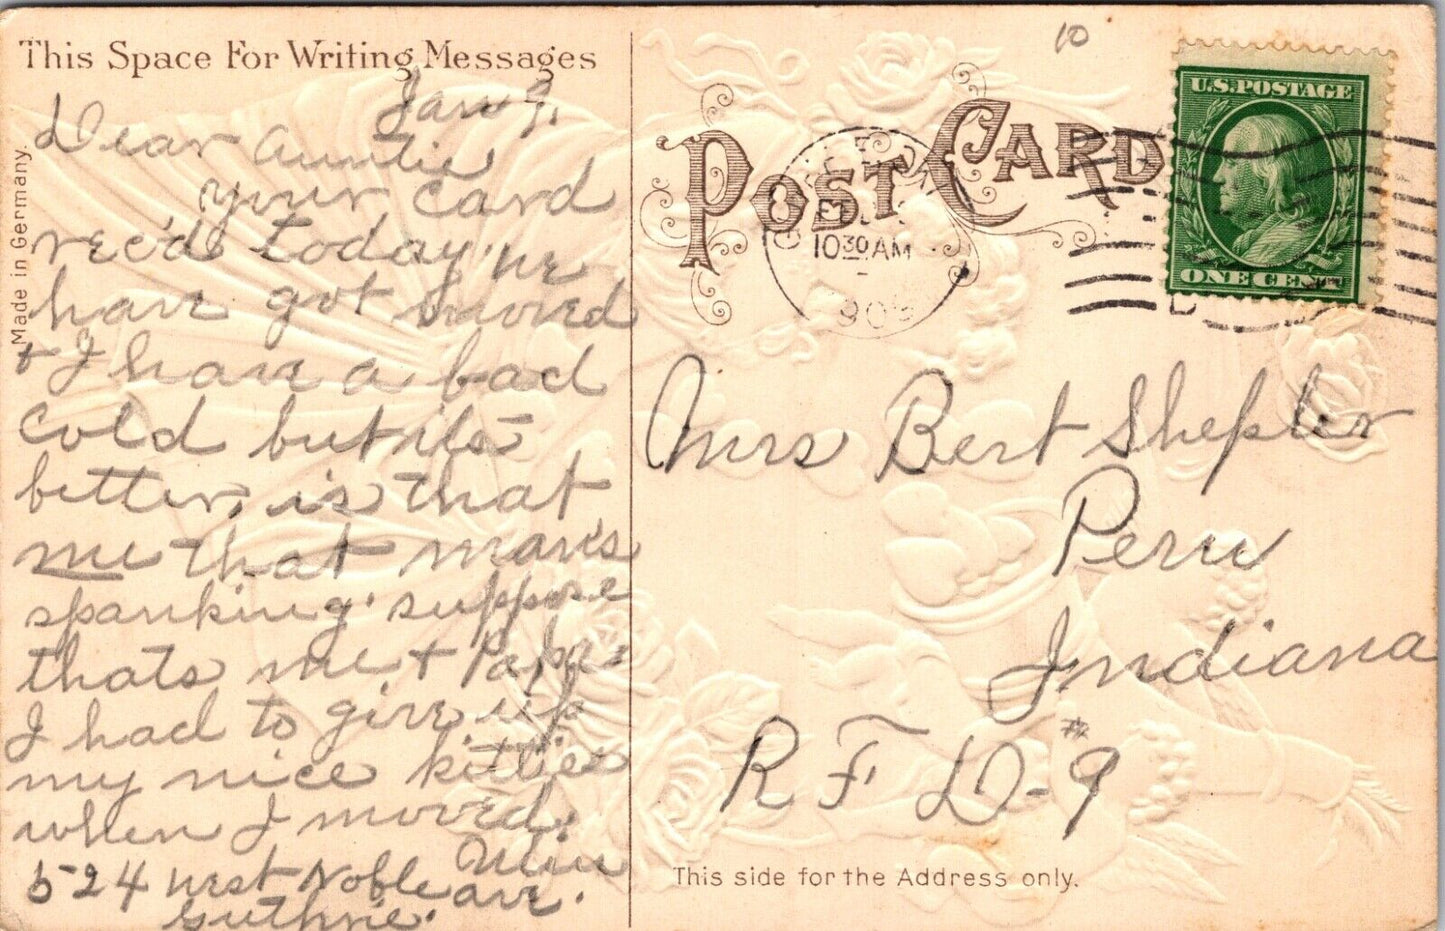 This Space For Writing Messages
Jan 9,
Dear Auntie
your card
rec'd today. we
have got moved
+ I have a bad
cold but its
better, is that
me that man's
spanking. suppose
thats me + Papa
I had to give up
my nice kitties
when I moved.
524 West Noble ave.
Guthrie.
Made in Germany.
10
POST CARD
U.S. POSTAGE
ONE CENT
10 30 AM
Mrs Bert Shepler
Peru
Indiana
R F D - #9
This side for the Address only.